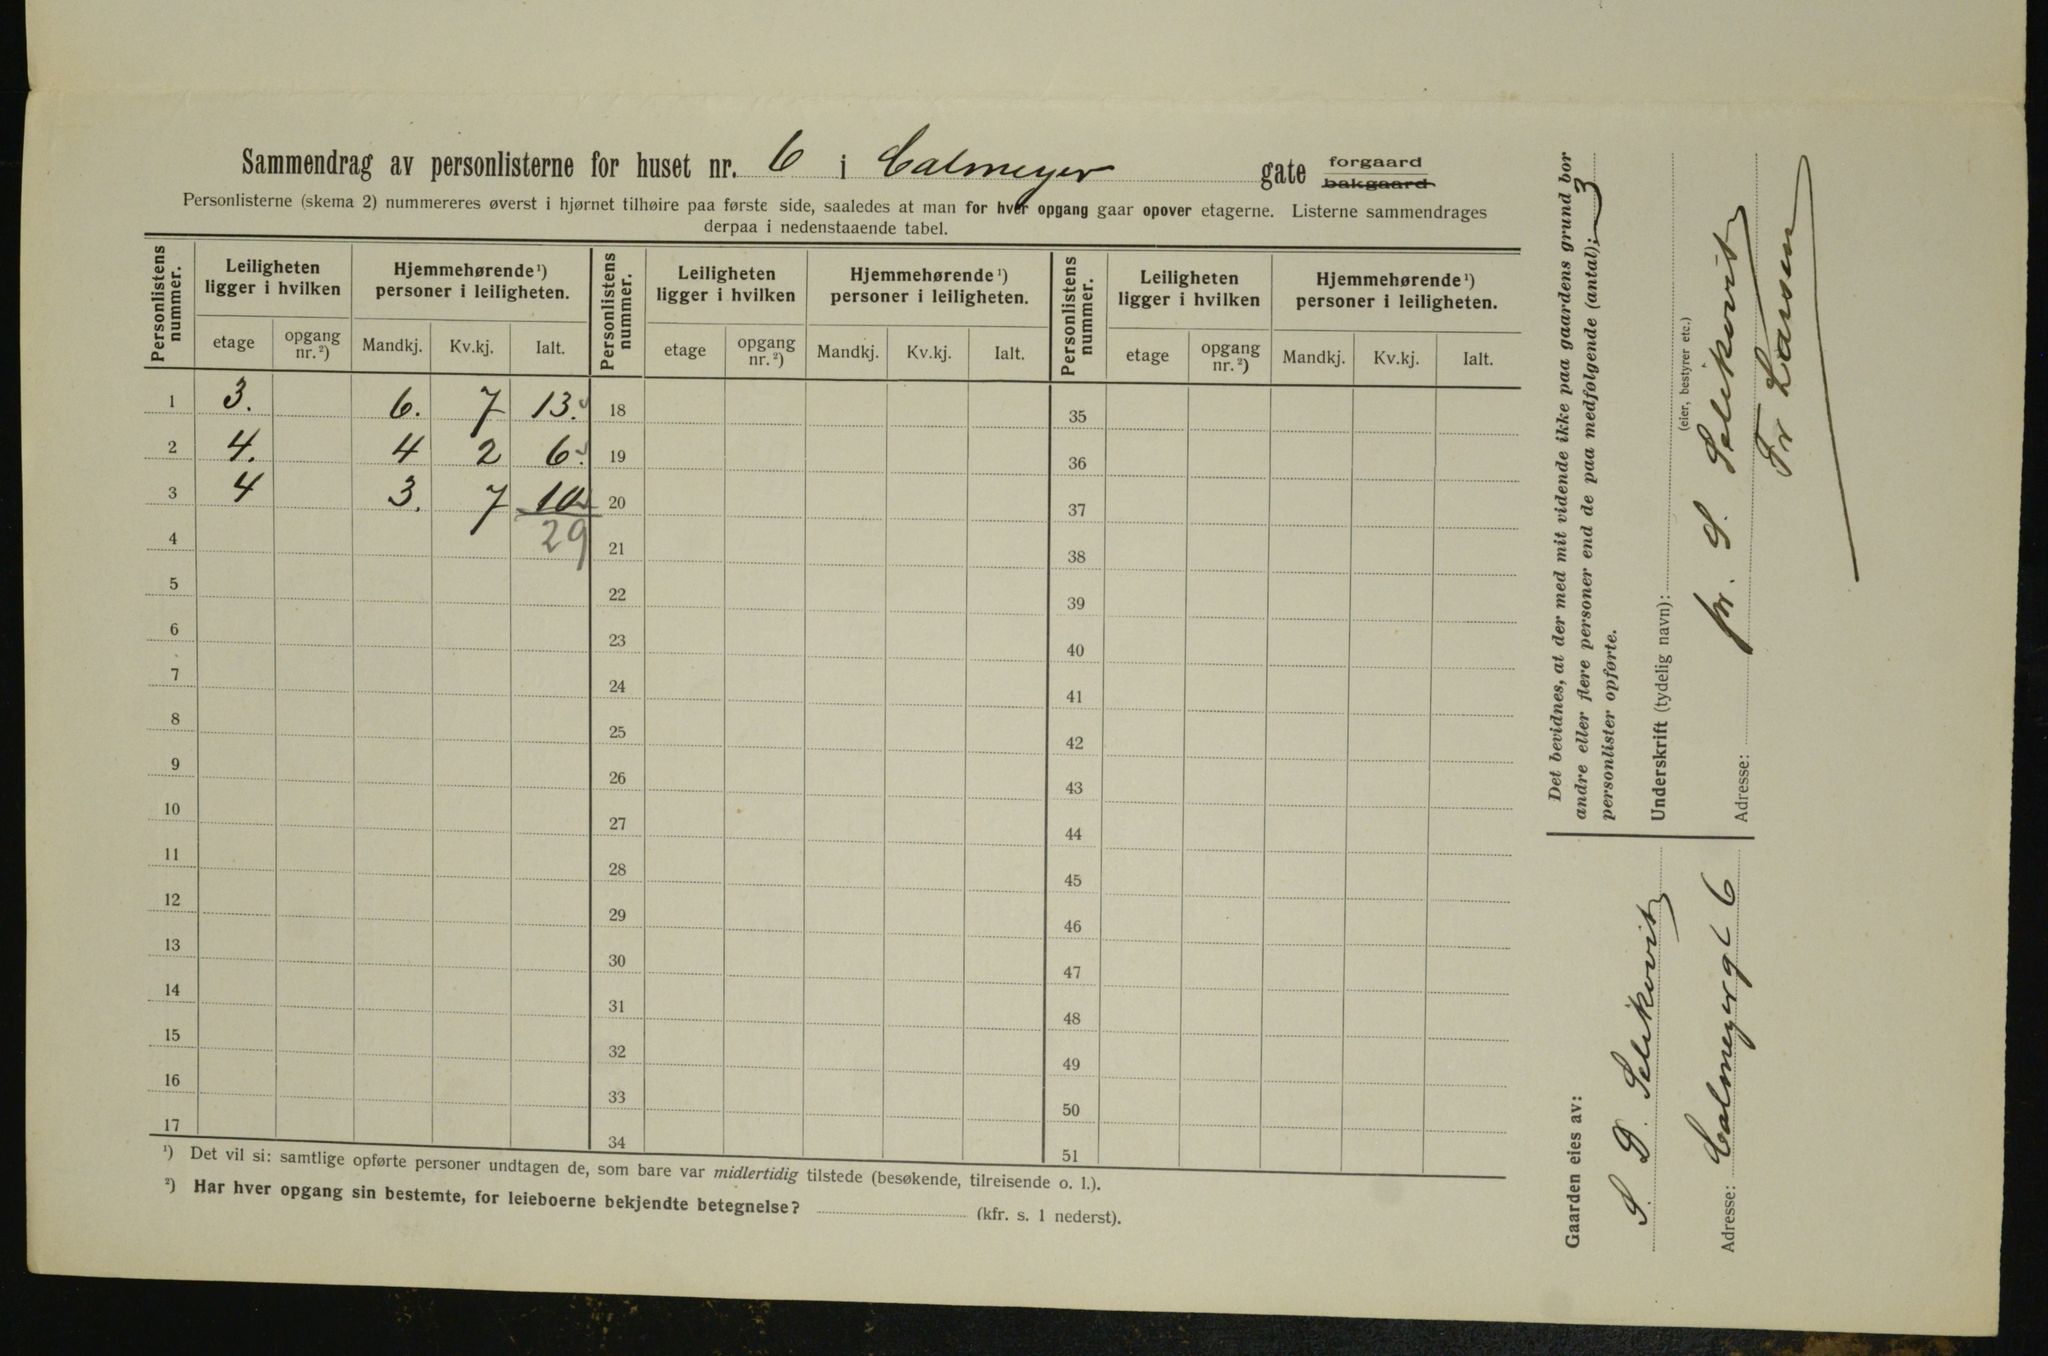 Sammendrag av personlisterne for huset nr. 6 i Calmeyer gate forgaard bakgaard
Personlisterne (skema 2) nummereres øverst i hjørnet tilhøire paa første side, saaledes at man for hver opgang gaar opover etagerne. Listerne sammendrages
derpaa i nedenstaaende tabel.
Personlistens nummer. Leiligheten ligger i hvilken Hjemmehørende ¹) personer i leiligheten. Personlistens nummer. Leiligheten ligger i hvilken Hjemmehørende ¹) personer i leiligheten. Personlistens nummer. Leiligheten ligger i hvilken Hjemmehørende ¹) personer i leiligheten.
etage opgang nr. ²) Mandkj. Kv.kj. Ialt. etage opgang nr. ²) Mandkj. Kv.kj. Ialt. etage opgang nr. ²) Mandkj. Kv.kj. Ialt.
1 3. 6. 7 13. 18 35
2 4. 4 2 6. 19 36
3 4 3. 7 10 20 37
4 29 21 38
5 22 39
6 23 40
7 24 41
8 25 42
9 26 43
10 27 44
11 28 45
12 29 46
13 30 47
14 31 48
15 32 49
16 33 50
17 34 51
¹) Det vil si: samtlige opførte personer undtagen de, som bare var midlertidig tilstede (besøkende, tilreisende o. l.).
²) Har hver opgang sin bestemte, for leieboerne bekjendte betegnelse? (kfr. s. 1 nederst).
Det bevidnes, at der med mit vidende ikke paa gaardens grund bor
andre eller flere personer end de paa medfolgende (antal): 3
personlister opførte.
Underskrift (tydelig navn):
(eier, bestyrer etc.)
pr. S. Selikovitz
Fr Larsen
Adresse:
Gaarden eies av:
S. D. Selikovitz
Adresse: Calmeyergt 6